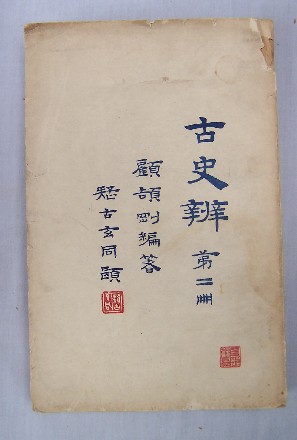 古史辨 第二冊
顧頡剛編著
疑古玄同題